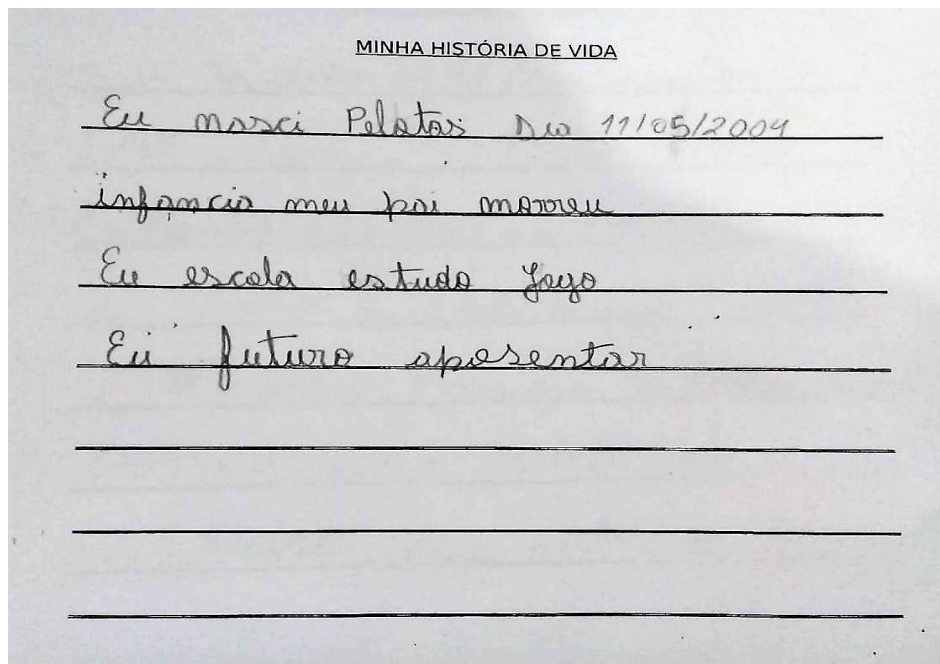 MINHA HISTÓRIA DE VIDA
Eu nasci Pelotas Dia 11/05/2004
infância meu pai morreu
Eu escola estudo Jogo
Eu futuro aposentar